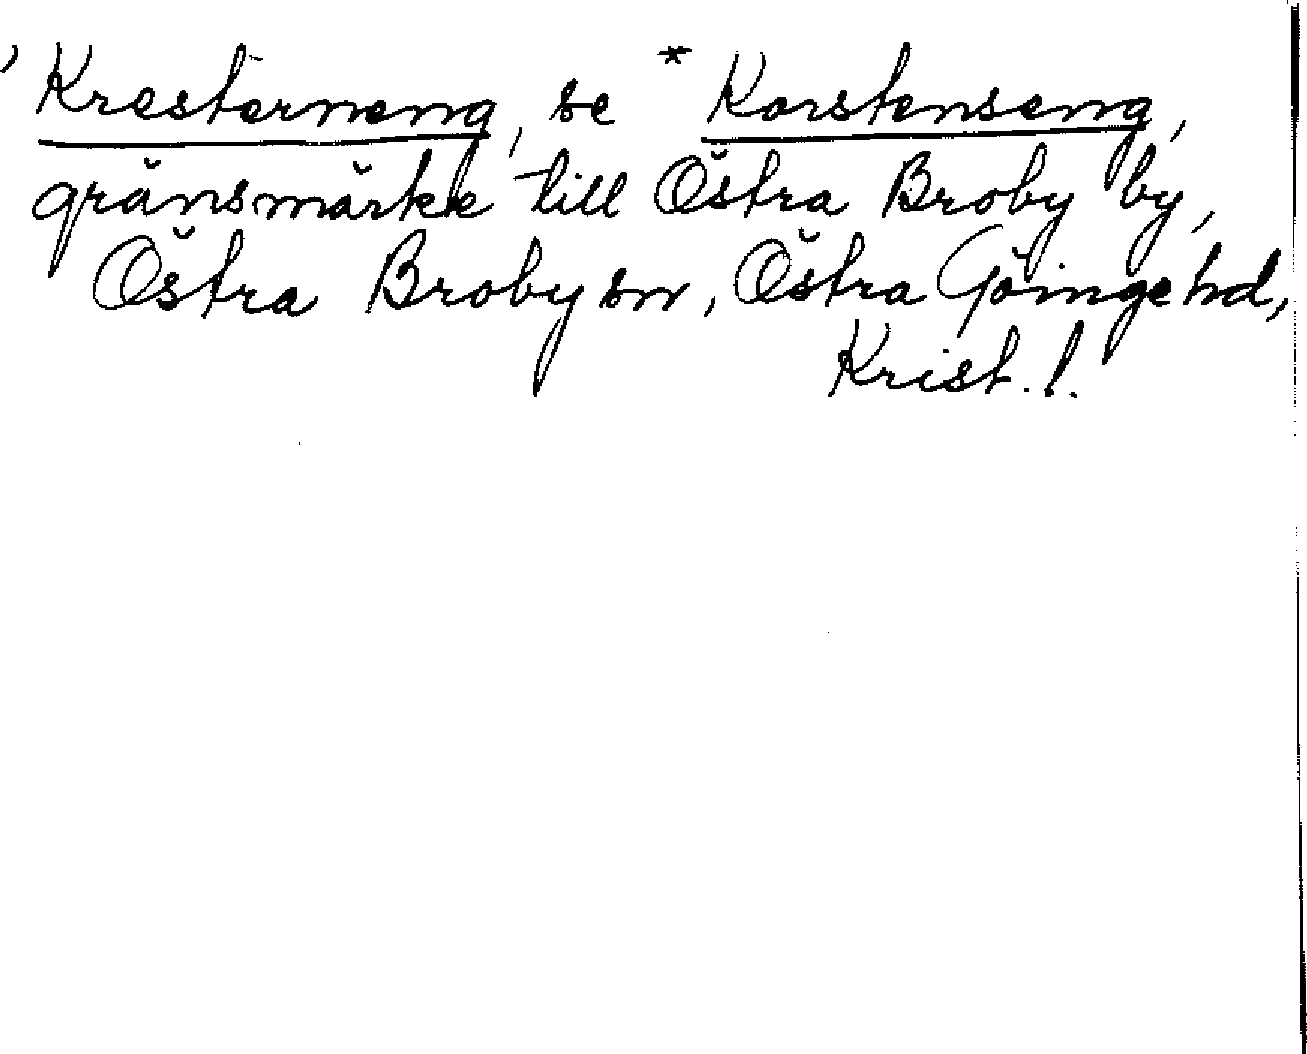 Kresterneng, se * Korstenseng,
gränsmärke till Östra Broby by,
Östra Broby sn, Östra Göinge hd,
Krist. l.